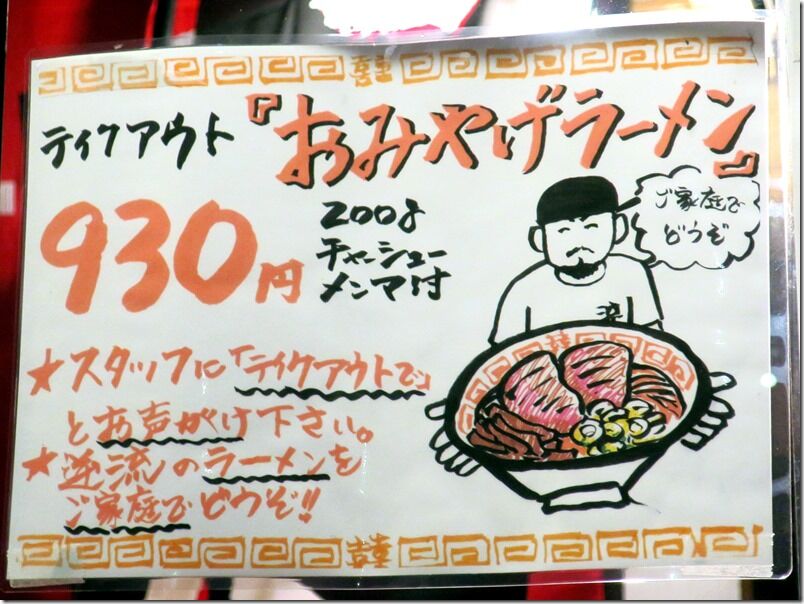 テイクアウト『おみやげラーメン』
930円
200g
チャーシュー
メンマ付
ご家庭で
どうぞ
★スタッフに「テイクアウトで」
とお声がけ下さい。
★逆流のラーメンを
ご家庭でどうぞ!!